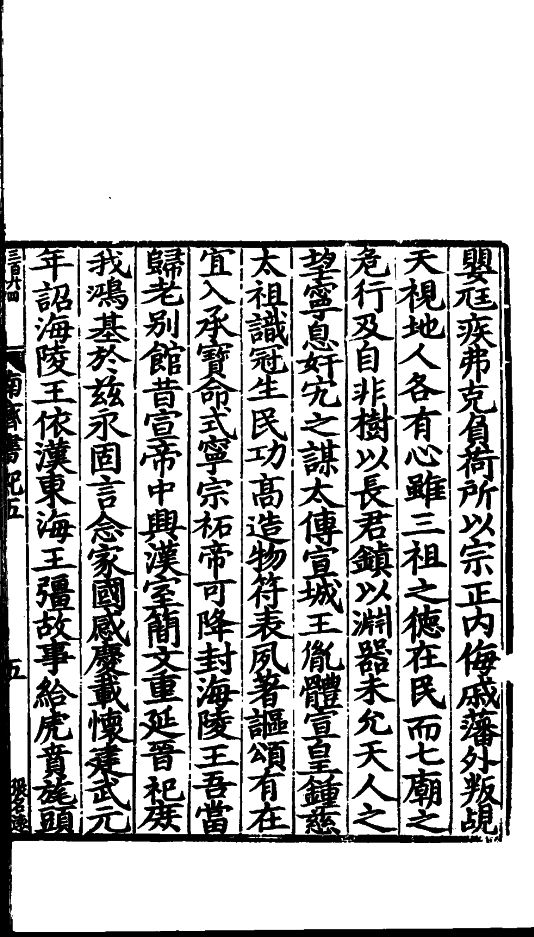 嬰尫疾弗克負荷所以宗正内侮戚藩外叛覘
天視地人各有心雖三祖之德在民而七廟之
危行及自非樹以長君鎮以淵器未允天人之
望寧息奸宄之謀太傅宣城王胤體宣皇鍾慈
太祖識冠生民功高造物符表夙著謳頌有在
宜入承寶命式寧宗祏帝可降封海陵王吾當
歸老別館昔宣帝中興漢室簡文重延晉祀庶
我鴻基於兹永固言念家國感慶載懷建武元
年詔海陵王依漢東海王彊故事給虎賁旄頭
三百六四 南齊書紀五 五